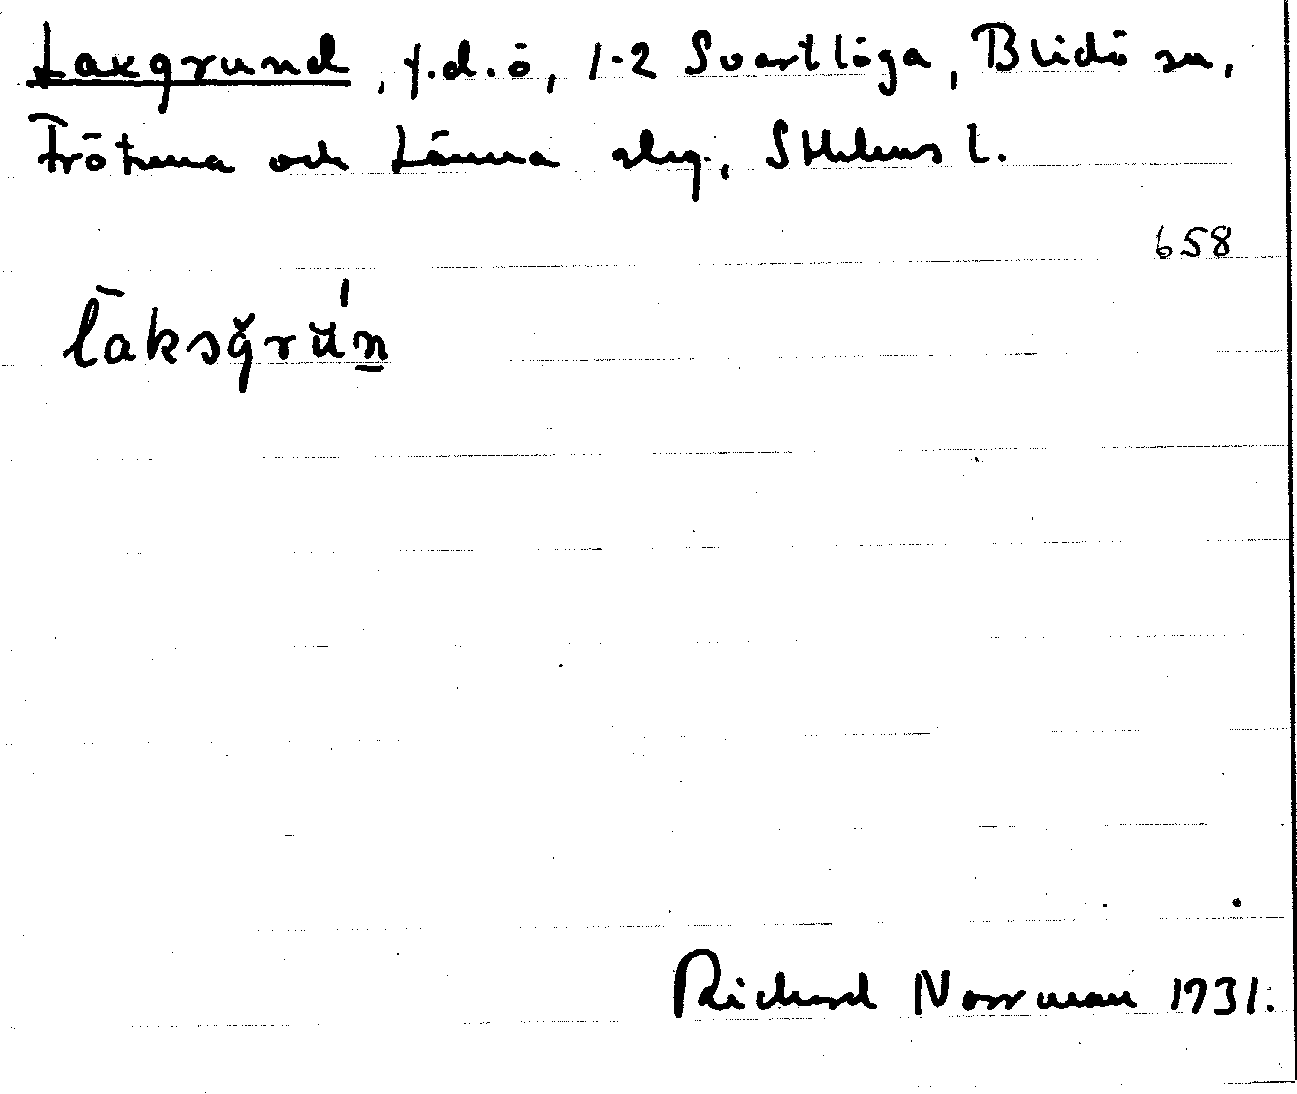 Laxgrund, f.d. ö, 1-2 Svartlöga, Blidö sn,
Frötuna och Länna slg., Sthlms l.
658
l̄aksǧrŭ́n̲
Richard Norrman 1931.